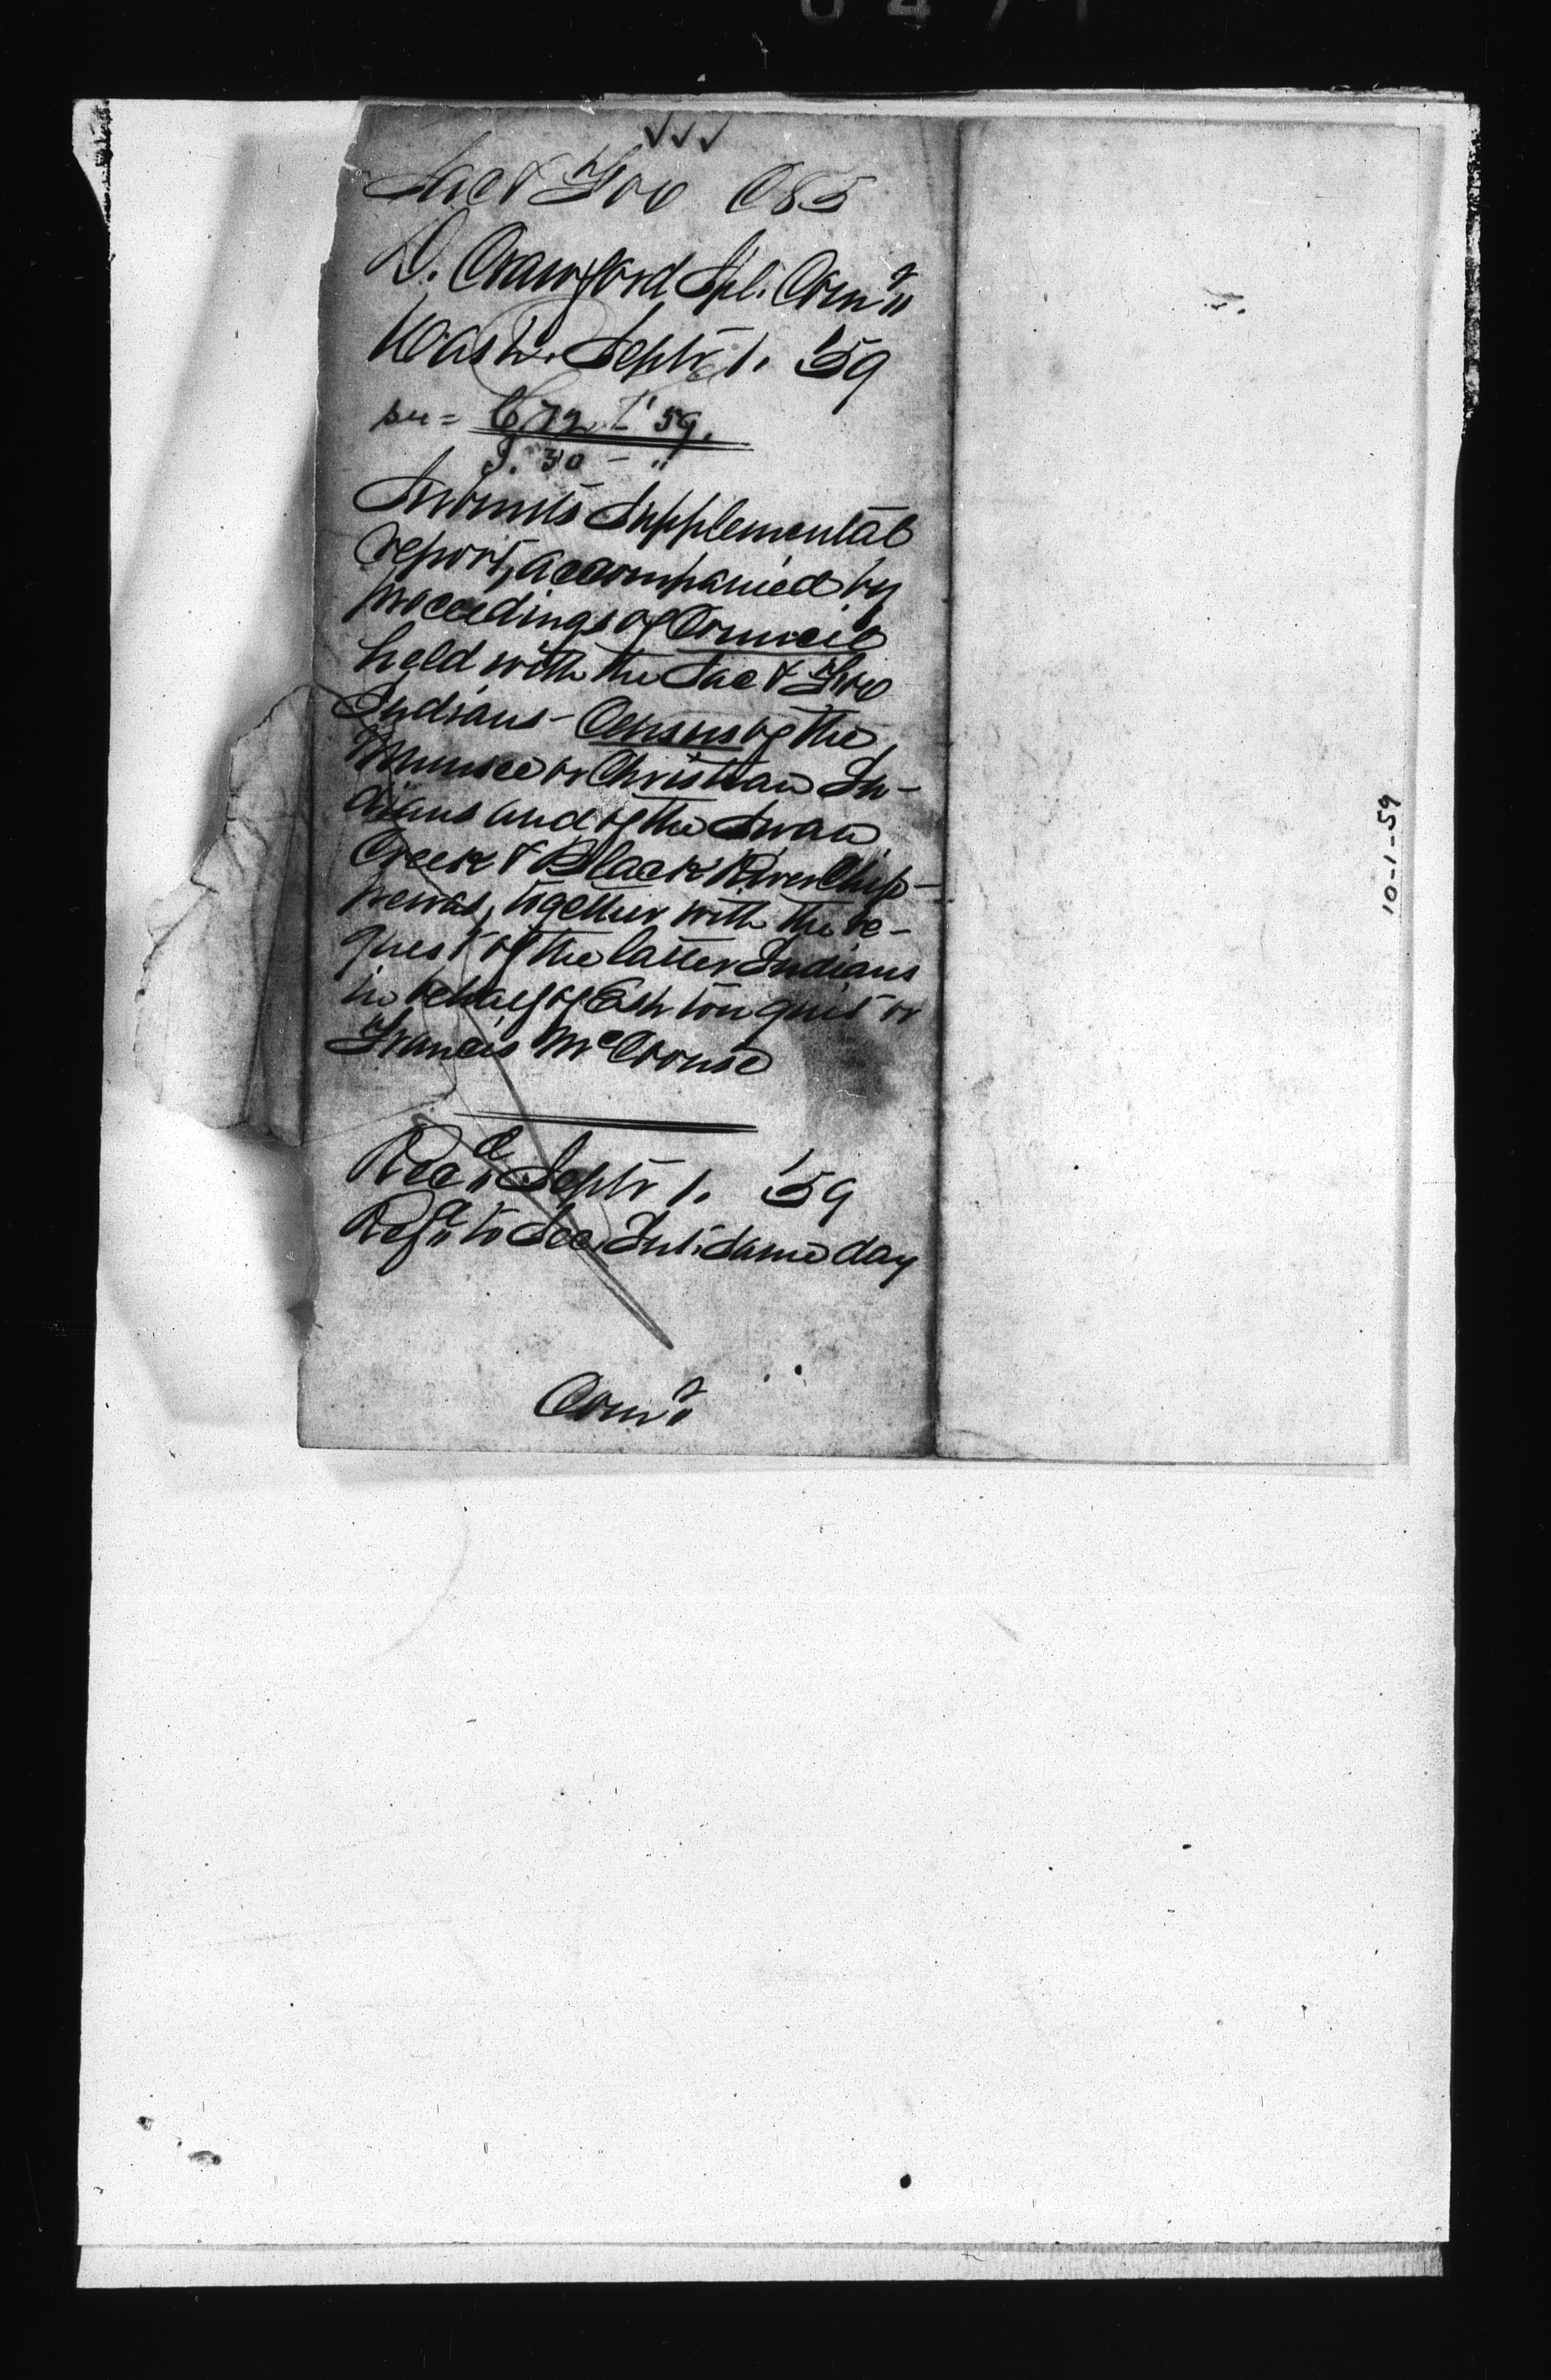 Sac & Fox C85
D. Crawford Spl. Comr
Washn. Septr 1. '59
see = C 72 - '59.
I. 30 - "
Submits Supplemental
report, accompanied by
proceedings of Council
held with the Sac & Fox
Indians - Census of the
Munsee or Christian In-
dians and of the Swan
Creek & Black River Chip-
pewas, together with the re-
quest of the latter Indians
in behalf of Eshtonquit or
Francis McCoonse
Recd Septr 1. '59
Refd to Sec. Int. same day
Comr
10-1-59